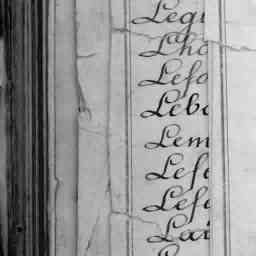 Legr
Lho
Lefo
Lebo
Lem
Lefe
Lefe
Lai